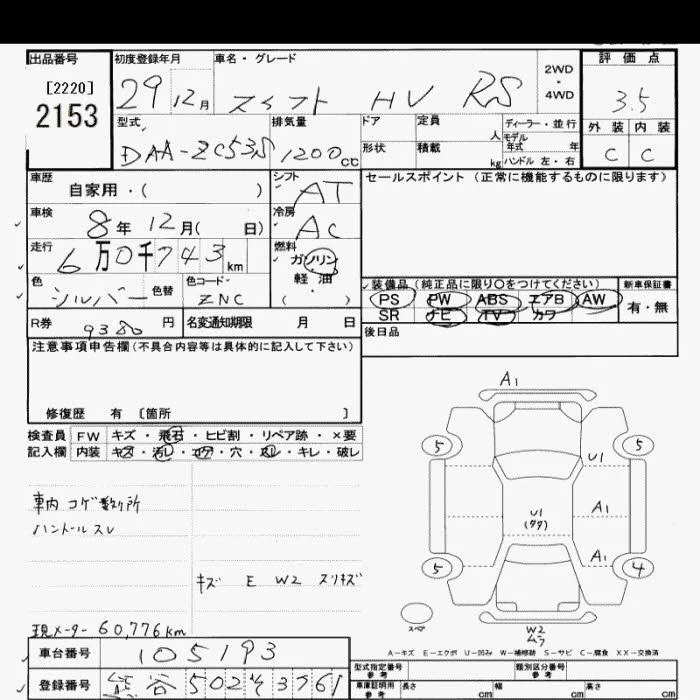 出品番号 初度登録年月 車名・グレード 2WD・4WD 評価点
[2220]
2153
29 12月 スイフト HV RS 3.5
型式 排気量 ドア 定員 人 ディーラー・並行 外装 内装
DAA-ZC53S 1200cc 形状 積載 kg モデル年式 年 ハンドル 左・右 C C
車歴 自家用・( ) シフト AT セールスポイント(正常に機能するものに限ります)
車検 8年12月( 日) 冷房 AC
走行 6万0千743km 燃料 ガソリン
軽・油
( )
色 シルバー 色替 色コード ZNC
装備品(純正品に限り○をつけてください) 新車保証書
PS PW ABS エアB AW 有・無
SR ナビ TV カワ
R券 9380円 名変通知期限 月 日 後日品
注意事項申告欄(不具合内容等は具体的に記入して下さい)
修復歴 有 [箇所 ]
検査員 FW キズ・飛石・ヒビ割・リペア跡・×要
記入欄 内装 キズ・汚レ・コゲ・穴・スレ・キレ・破レ
車内コゲ数ヶ所
ハンドルスレ
キズ E W2 スリキズ
現メーター 60,776km
A1
5 5
U1
U1 A1
(タタ)
A1
5 4
スペア
W2
ムラ
A−キズ E−エクボ U−凹み W−補修跡 S−サビ C−腐食 XX−交換済
車台番号 105193
登録番号 熊谷 502 3761
型式指定番号 参考 類別区分番号 参考
車庫証明用 参考 長さ cm 幅 cm 高さ cm